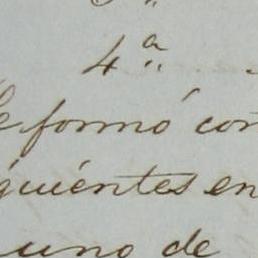 4ª
Se formó con
siguientes en
uno de